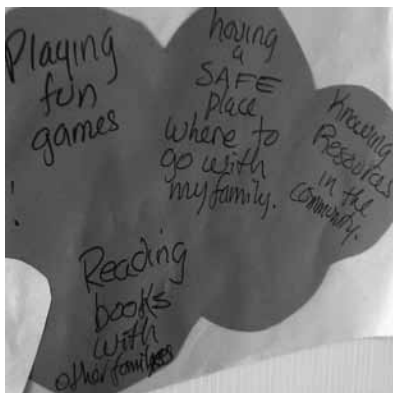 Playing
fun
games
!
having
a
SAFE
place
where to
go with
my family.
Knowing
Resources
in the
community.
Reading
books
with
other families